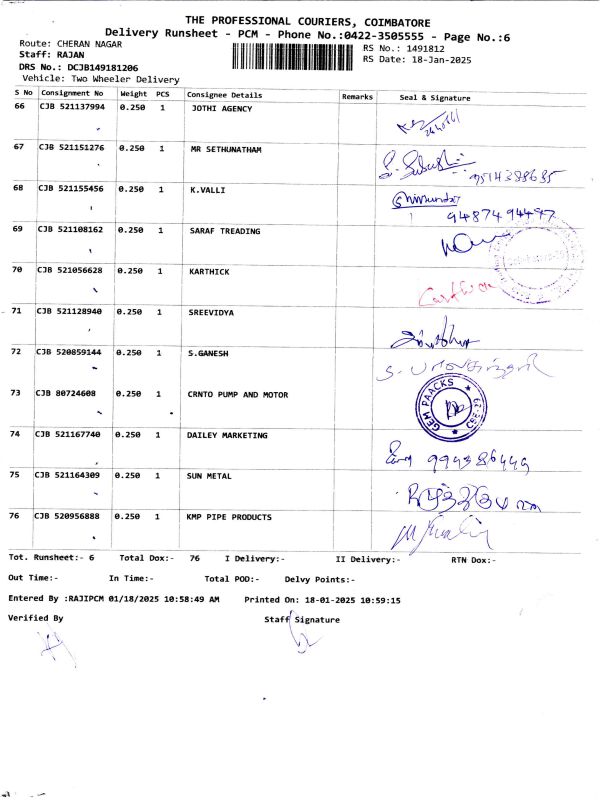 THE PROFESSIONAL COURIERS, COIMBATORE
Delivery Runsheet - PCM - Phone No.:0422-3505555 - Page No.:6
Route: CHERAN NAGAR RS No.: 1491812
Staff: RAJAN RS Date: 18-Jan-2025
DRS No.: DCJB149181206
Vehicle: Two Wheeler Delivery
S No Consignment No Weight PCS Consignee Details Remarks Seal & Signature
66 CJB 521137994 0.250 1 JOTHI AGENCY
67 CJB 521151276 0.250 1 MR SETHUNATHAM
68 CJB 521155456 0.250 1 K.VALLI 9487494497
69 CJB 521108162 0.250 1 SARAF TREADING
70 CJB 521056628 0.250 1 KARTHICK
71 CJB 521128940 0.250 1 SREEVIDYA
72 CJB 520859144 0.250 1 S.GANESH
73 CJB 80724608 0.250 1 CRNTO PUMP AND MOTOR GEM PAACKS CBE-29
74 CJB 521167740 0.250 1 DAILEY MARKETING
75 CJB 521164309 0.250 1 SUN METAL
76 CJB 520956888 0.250 1 KMP PIPE PRODUCTS
Tot. Runsheet:- 6 Total Dox:- 76 I Delivery:- II Delivery:- RTN Dox:-
Out Time:- In Time:- Total POD:- Delvy Points:-
Entered By :RAJIPCM 01/18/2025 10:58:49 AM Printed On: 18-01-2025 10:59:15
Verified By Staff Signature